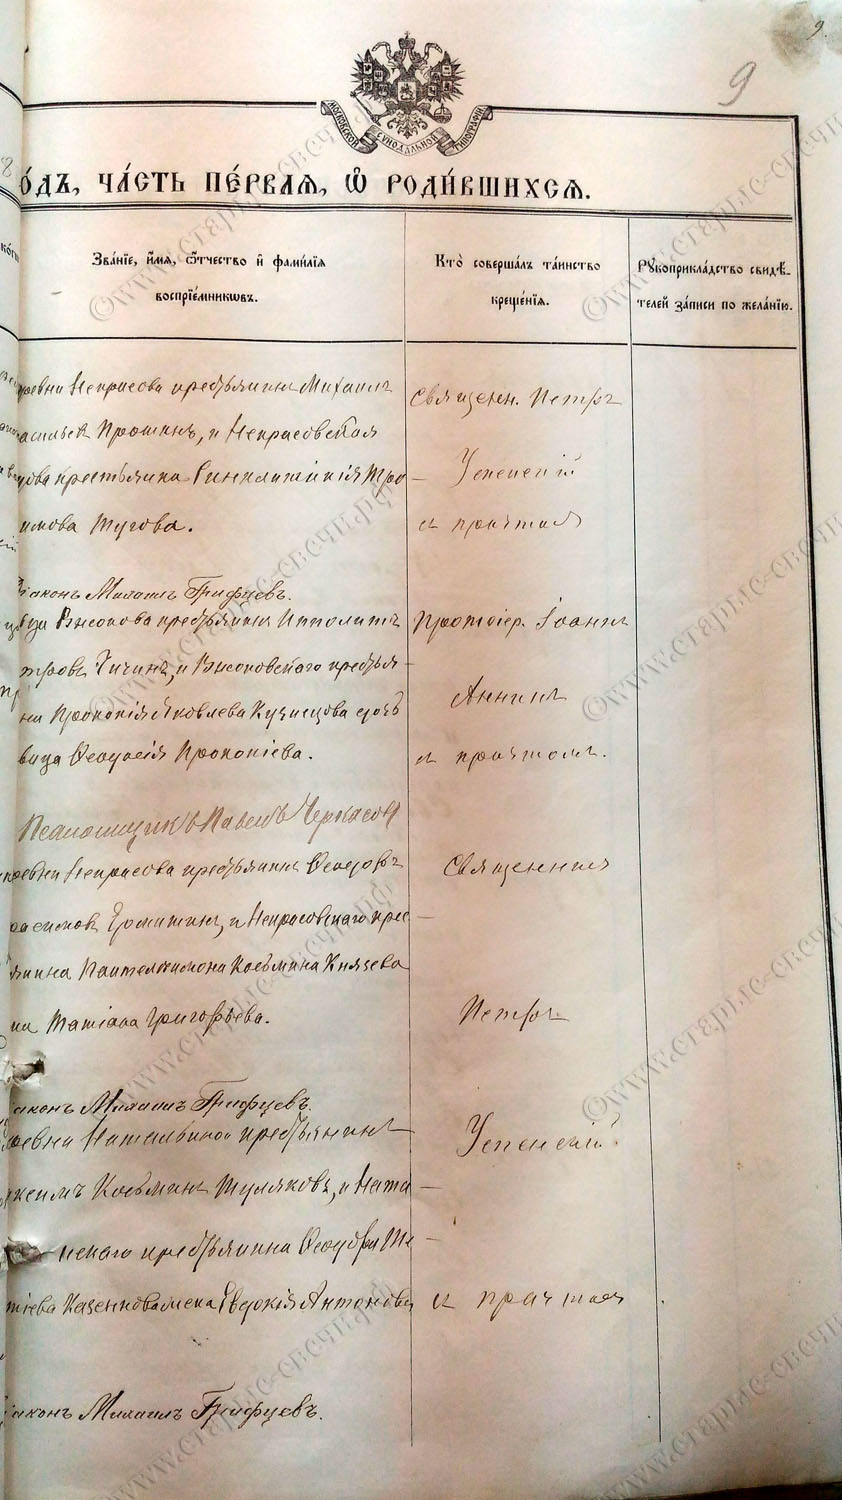 9.
9
МОСКОВСКОЙ СѴНОДАЛЬНОЙ ТИПОГРАФІИ
ОДЪ, ЧАСТЬ ПЕРВАЯ, Ѿ РОДИВШИХСЯ.
Званіе, имя, ѿчество и фамилія воспріемниковъ.
Кто совершалъ таинство крещенія.
Рукоприкладство свидѣтелей записи по желанію.
ревни Некрасова крестьянинъ Михаилъ
асильев Прошинъ, и Некрасовская
дова крестьянка Синклитикія Тро
имова Тугова.
Священ. Петръ
Успенскій
и причтомъ
іаконъ Михаилъ Грифцевъ.
Высокова крестьянинъ Ипполитъ
тровъ Чичинъ, и Высоковскаго крестья-
на Прокопія Яковлева Кузнецова дочь
вица Ѳеодосія Прокопіева.
Протоіер. Іоаннъ
Аннинъ
и причтомъ.
Псаломщикъ Павелъ Черкасов
ревни Некрасова крестьянинъ Ѳеодоръ
расимовъ Ермишинъ, и Некрасовскаго крес-
янина Пантелеимона Косьмина Князева
на Татіана Григорьева.
Священникъ
Петръ
Успенскій
и причтомъ
іаконъ Михаилъ Грифцевъ.
ревни Натальиной крестьянинъ
ксимъ Косьминъ Туляковъ, и Ната-
нскаго крестьянина Ѳеодора Ти-
Евдокія Антонова
іаконъ Михаилъ Грифцевъ.
©www.старые-свечи.рф